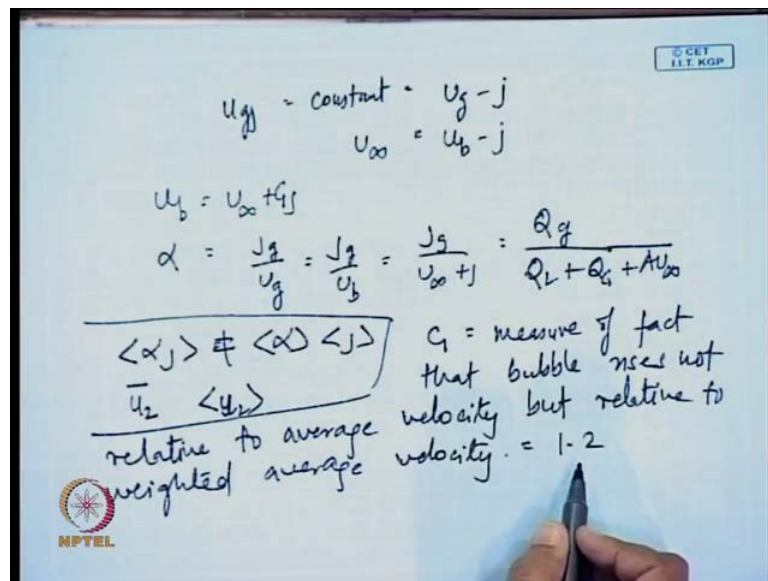 © CET
I.I.T. KGP
u_gj = constant = u_g - j
u_∞ = u_b - j
u_b = u_∞ + C₁j
α = J_g/u_g = J_g/u_b = J_g/(u_∞ + j) = Q_g/(Q_L + Q_G + Au_∞)
<αj> ≠ <α> <j>
ū₂ <u₂>
C₁ = measure of fact
that bubble rises not
relative to average velocity but relative to
weighted average velocity. = 1.2
NPTEL